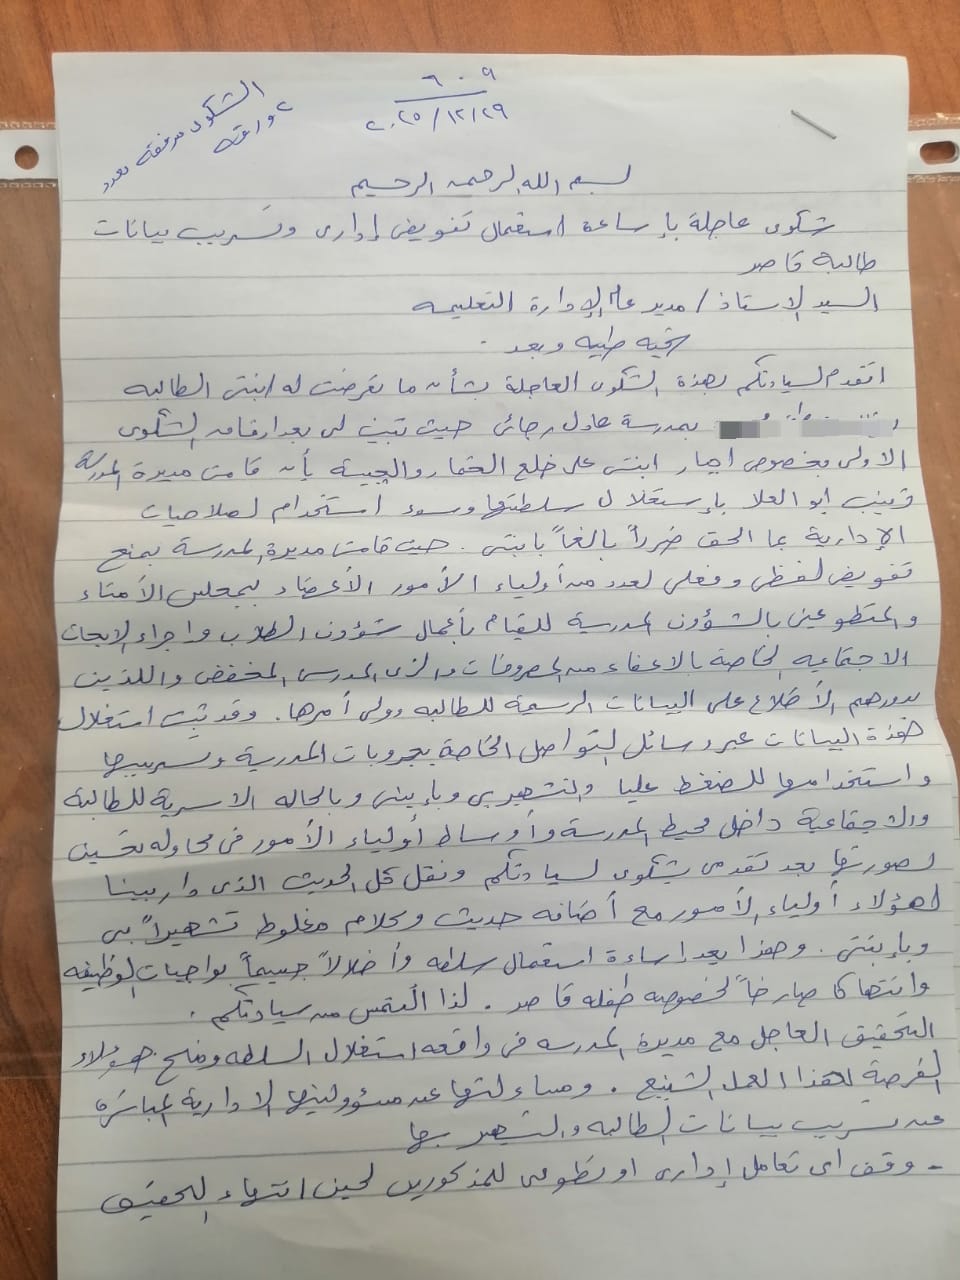 ٦٠٩
٢٠٢٥/١٢/٢٩
الشكوى مرفقه بعدد
٢ ورقه
بسم الله الرحمن الرحيم
شكوى عاجلة بإساءة استعمال تفويض إدارى وتسريب بيانات
طالبة قاصر
السيد الاستاذ / مدير عام الإدارة التعليمه
تحيه طيبه وبعد .
اتقدم لسيادتكم بهذة الشكوى العاجلة بشأن ما تعرضت له ابنتى الطالبه
بمدرسة عادل رجائى حيث تبين لى بعد ارفاق الشكوى
الاولى بخصوص اجبار ابنتى على خلع الخمار والجيبة بأن قامت مديرة المدرسة
زينب ابو العلا بإستغلال سلطتها وسوء استخدام لصلاحيات
الإدارية بما الحق ضرراً بالغاً بابنتى . حيث قامت مديرة المدرسة بمنح
تفويض لفظى وفعلى لعدد من أولياء الأمور الأعضاء بمجلس الأمناء
والمتطوعين بالشؤون المدرسية للقيام بأعمال شؤون الطلاب واجراء الابحاث
الاجتماعيه الخاصة بالاعفاء من المصروفات والزى المدرسى المخفض واللذين
بدورهم الأطلاع على البيانات الرسمية للطالبه وولى أمرها . وقد ثبت استغلال
هذة البيانات عبر وسائل التواصل الخاصة بجروبات المدرسة وتسريبها
واستخدامها للضغط عليا والتشهير بى وبإبنتى وبالحاله الاسرية للطالبة
والاجتماعية داخل محيط المدرسة وأوساط أولياء الأمور فى محاوله تحسين
لصورتها بعد تقدمى بشكوى لسيادتكم ونقل كل الحديث الذى دار بيننا
لهؤلاء أولياء الأمور مع أضافه حديث وكلام مغلوط تشهيراً بى
وبإبنتى . وهذا يعد اساءة استعمال سلطه وأخلالاً جسيماً بواجبات الوظيفه
وانتهاكا صارخاً لخصوصيه طفله قاصر . لذا ألتمس من سيادتكم .
التحقيق العاجل مع مديرة المدرسه فى واقعه استغلال السلطه ومنح هؤلاء
الفرصة لهذا العمل الشنيع . ومساءلتها عن مسؤوليتها الادارية المباشرة
عن تسريب بيانات الطالبه والتشهير بها
- وقف اى تعامل إدارى او تطوعى للمذكورين لحين انتهاء التحقيق